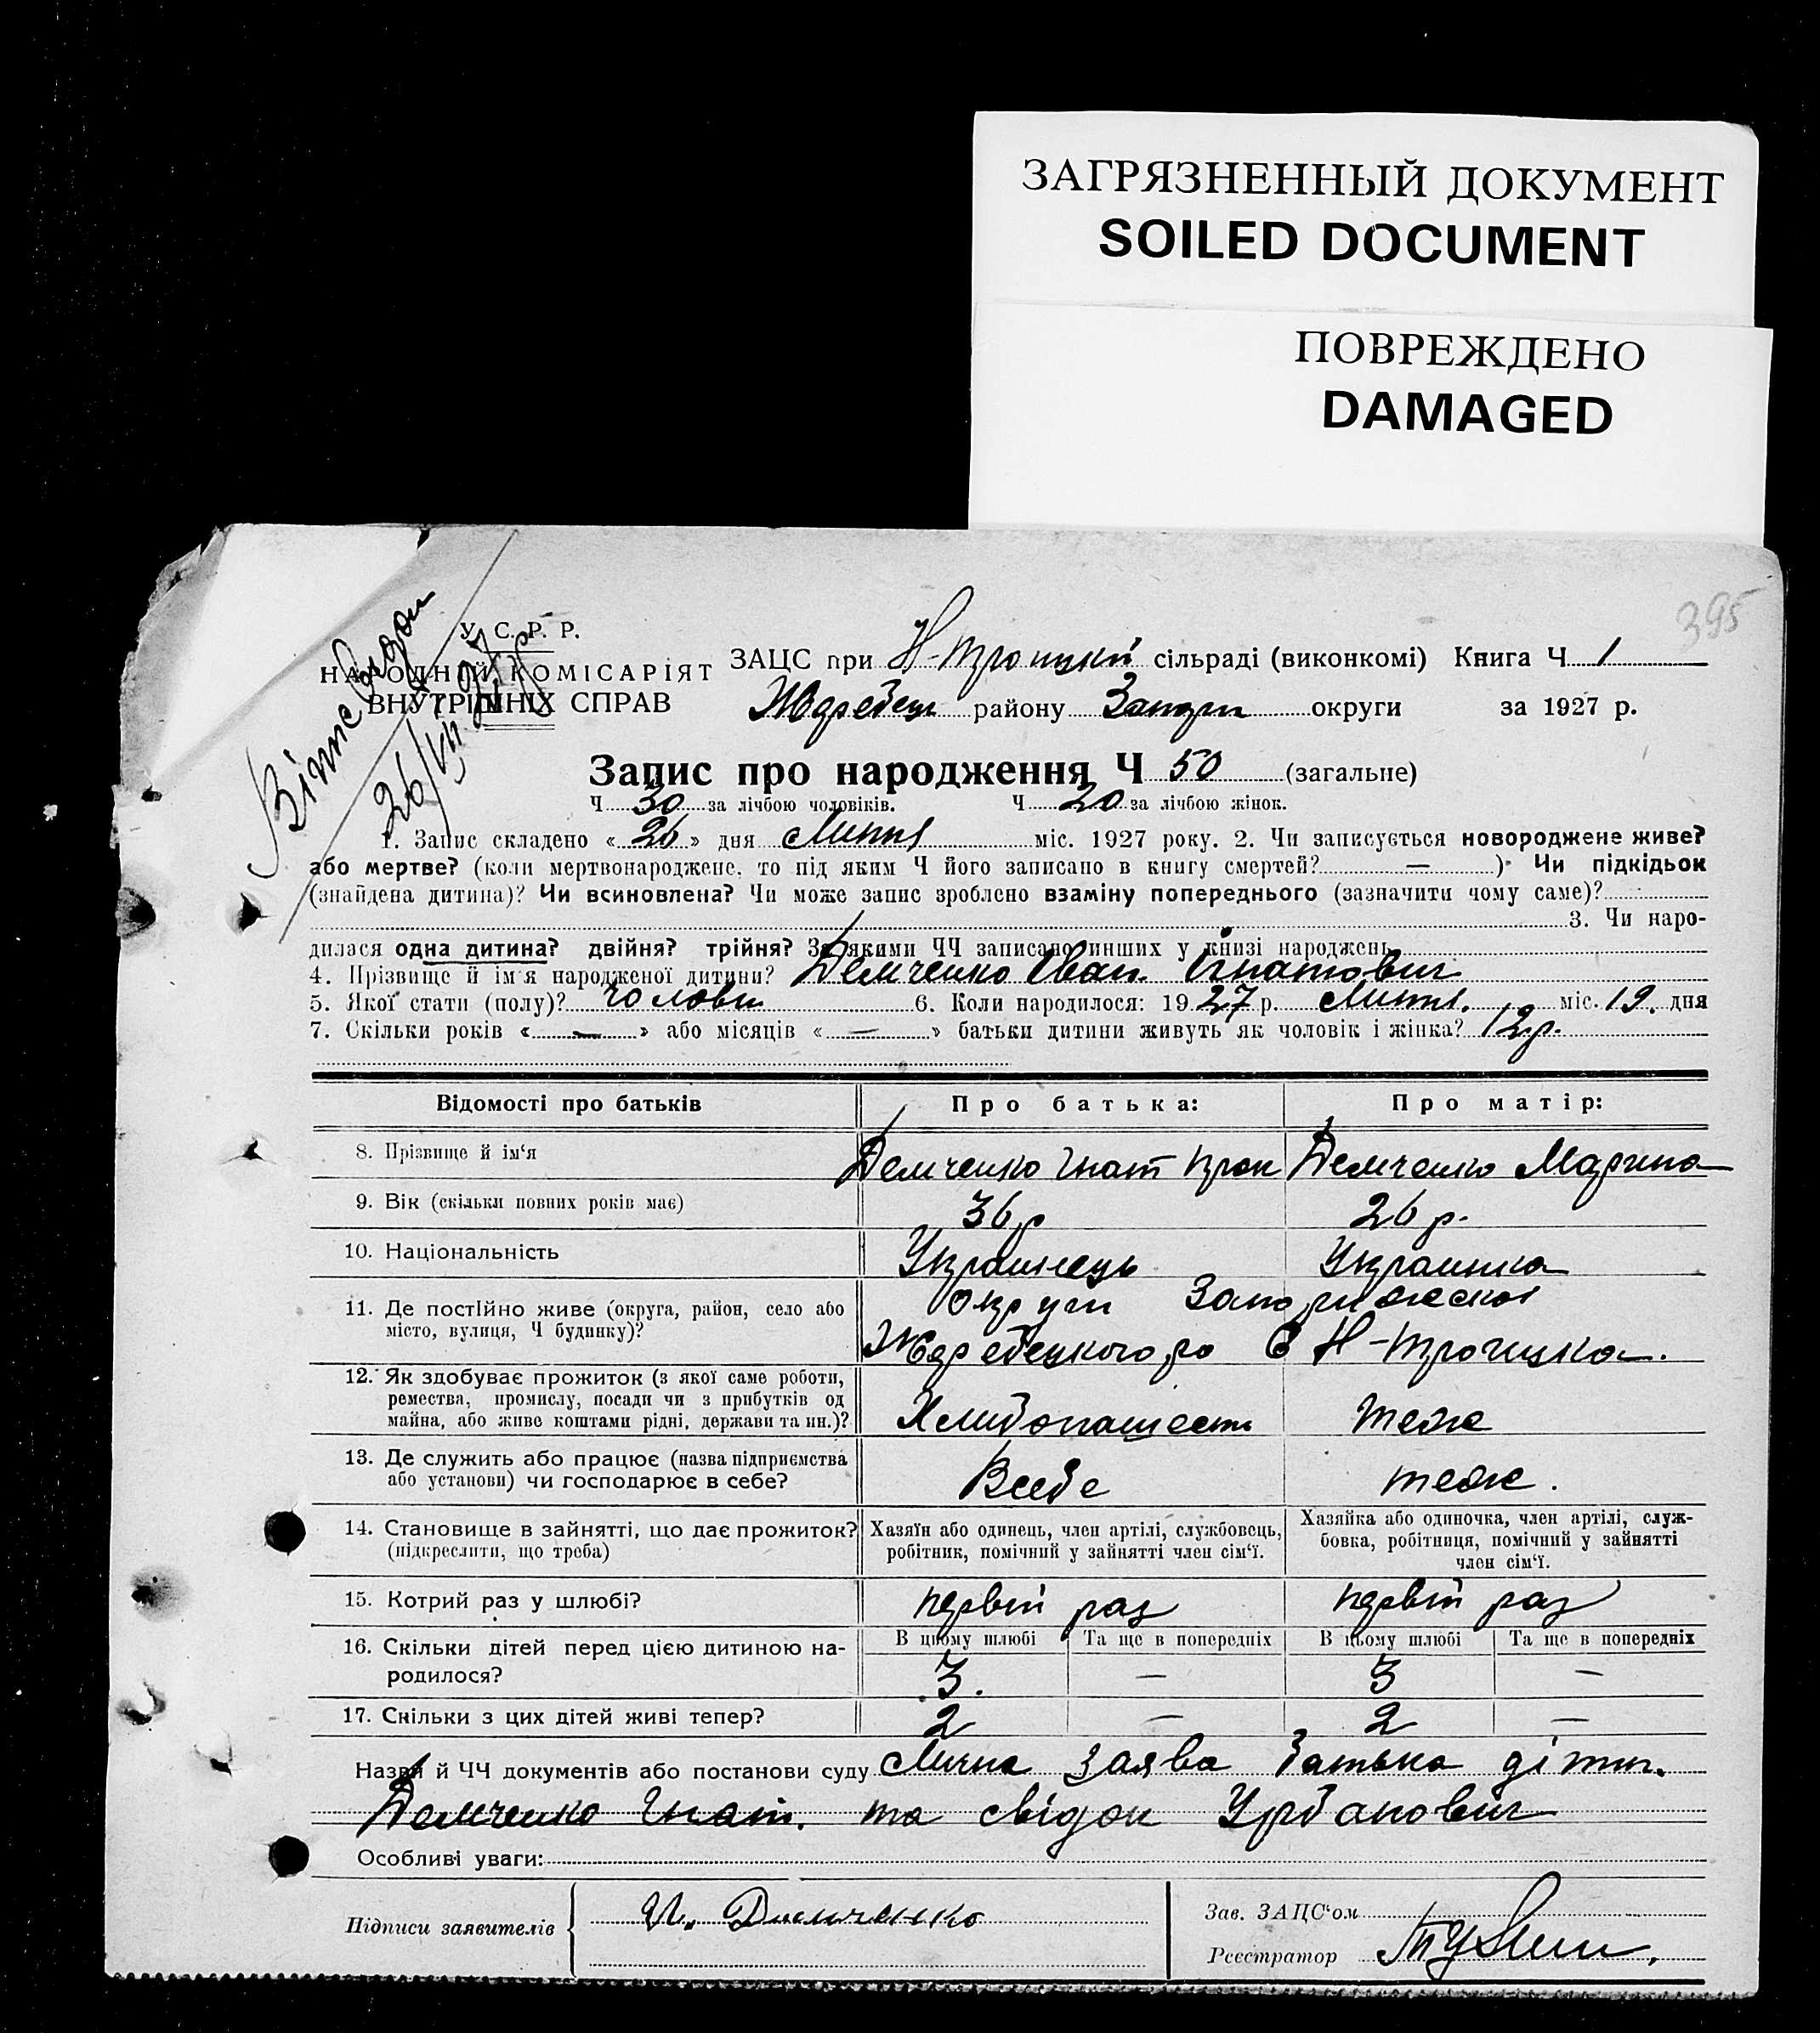 ЗАГРЯЗНЕННЫЙ ДОКУМЕНТ
SOILED DOCUMENT
ПОВРЕЖДЕНО
DAMAGED
395
26/VII 27 р
У. С. Р. Р.
НАРОДНІЙ КОМІСАРІЯТ
ВНУТРІШНІХ СПРАВ
ЗАЦС при Н-Троицкій сільраді (виконкомі) Книга Ч 1
Жеребец району Запор округи за 1927 р.
Запис про народження Ч 50 (загальне)
Ч 30 за лічбою чоловіків. Ч 20 за лічбою жінок.
1. Запис складено « 26 » дня Липня міс. 1927 року. 2. Чи записується новороджене живе?
або мертве? (коли мертвонароджене, то під яким Ч його записано в книгу смертей? — ) Чи підкідьок
(знайдена дитина)? Чи всиновлена? Чи може запис зроблено взаміну попереднього (зазначити чому саме)?
3. Чи наро-
дилася одна дитина? двійня? трійня? За якими ЧЧ записано инших у книзі народжень
4. Прізвище й ім'я народженої дитини? Демченко Іван Ігнатович
5. Якої стати (полу)? чолови 6. Коли народилося: 1927 р. Липня. міс. 19. дня
7. Скільки років « — » або місяців « — » батьки дитини живуть як чоловік і жінка? 12 р.
Відомості про батьків Про батька: Про матір:
8. Прізвище й ім'я Демченко Гнат Демченко Марина
9. Вік (скільки повних років має) 36 р 26 р.
10. Національність Украинець Украинка
11. Де постійно живе (округа, район, село або
місто, вулиця, Ч будинку)?
Округи Запорижской
Жеребецкого ро С Н-Троицка.
12. Як здобуває прожиток (з якої саме роботи,
ремества, промислу, посади чи з прибутків од
майна, або живе коштами рідні, держави та ин.)? Хлибопашест теж
13. Де служить або працює (назва підприємства
або установи) чи господарює в себе? Всебе теж.
14. Становище в зайнятті, що дає прожиток?
(підкреслити, що треба)
Хазяїн або одинець, член артілі, службовець,
робітник, помічний у зайнятті член сім'ї.
Хазяйка або одиночка, член артілі, служ-
бовка, робітниця, помічний у зайнятті
член сім'ї.
15. Котрий раз у шлюбі? первій раз первій раз
16. Скільки дітей перед цією дитиною на-
родилося?
В цьому шлюбі Та ще в попередніх В цьому шлюбі Та ще в попередніх
3. — 3 —
17. Скільки з цих дітей живі тепер? 2 — 2 —
Назви й ЧЧ документів або постанови суду Лична заява батька дітин.
Демченко Гнат. та свідок Урбанович
Особливі уваги:
Підписи заявителів И. Демченко
Зав. ЗАЦС'ом
Реєстратор